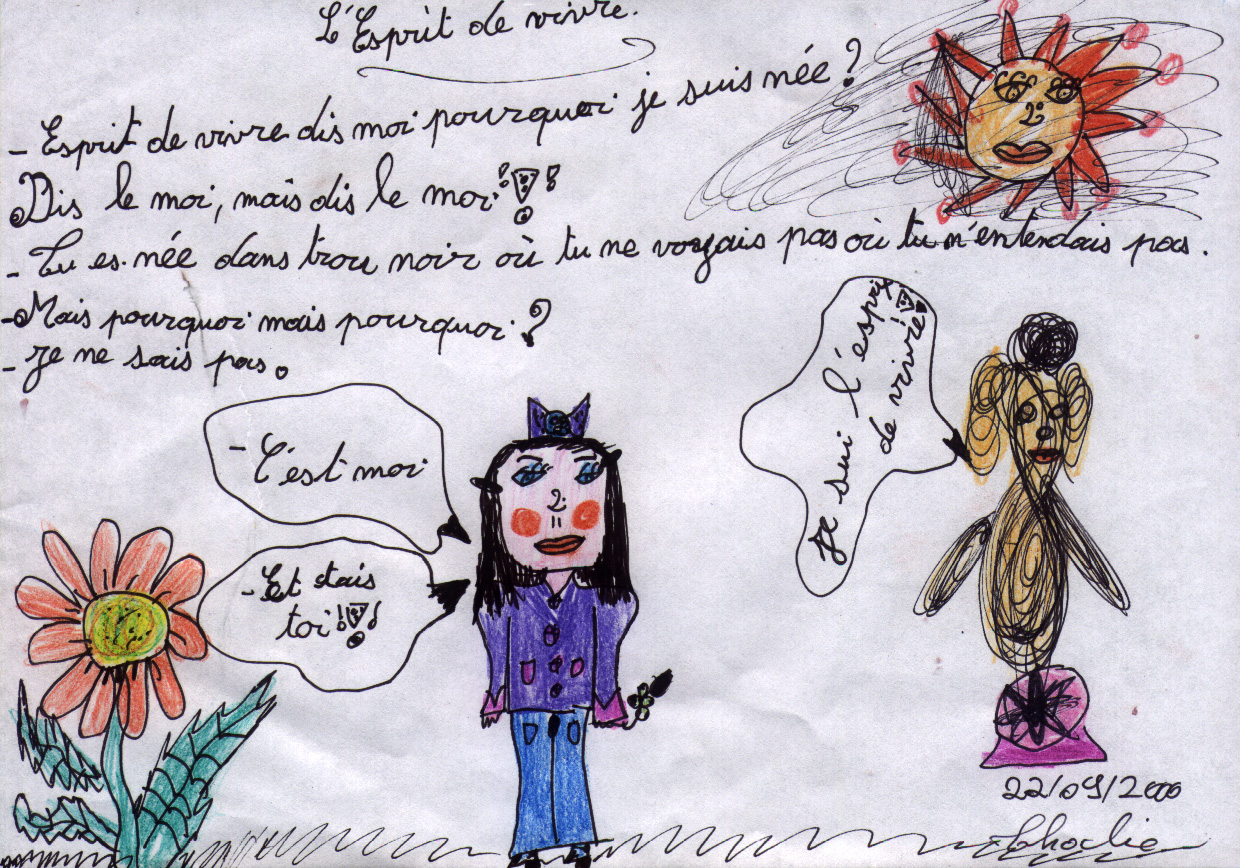 L'Esprit de vivre.
- Esprit de vivre dis moi pourquoi je suis née ?
Dis le moi, mais dis le moi !!!
- Tu es née dans trou noir où tu ne voyais pas où tu n'entendais pas.
- Mais pourquoi mais pourquoi ?
- Je ne sais pas.
- C'est moi
- Et tais
toi !!!
je sui l'esprit
de vivre !!!
22/09/2000